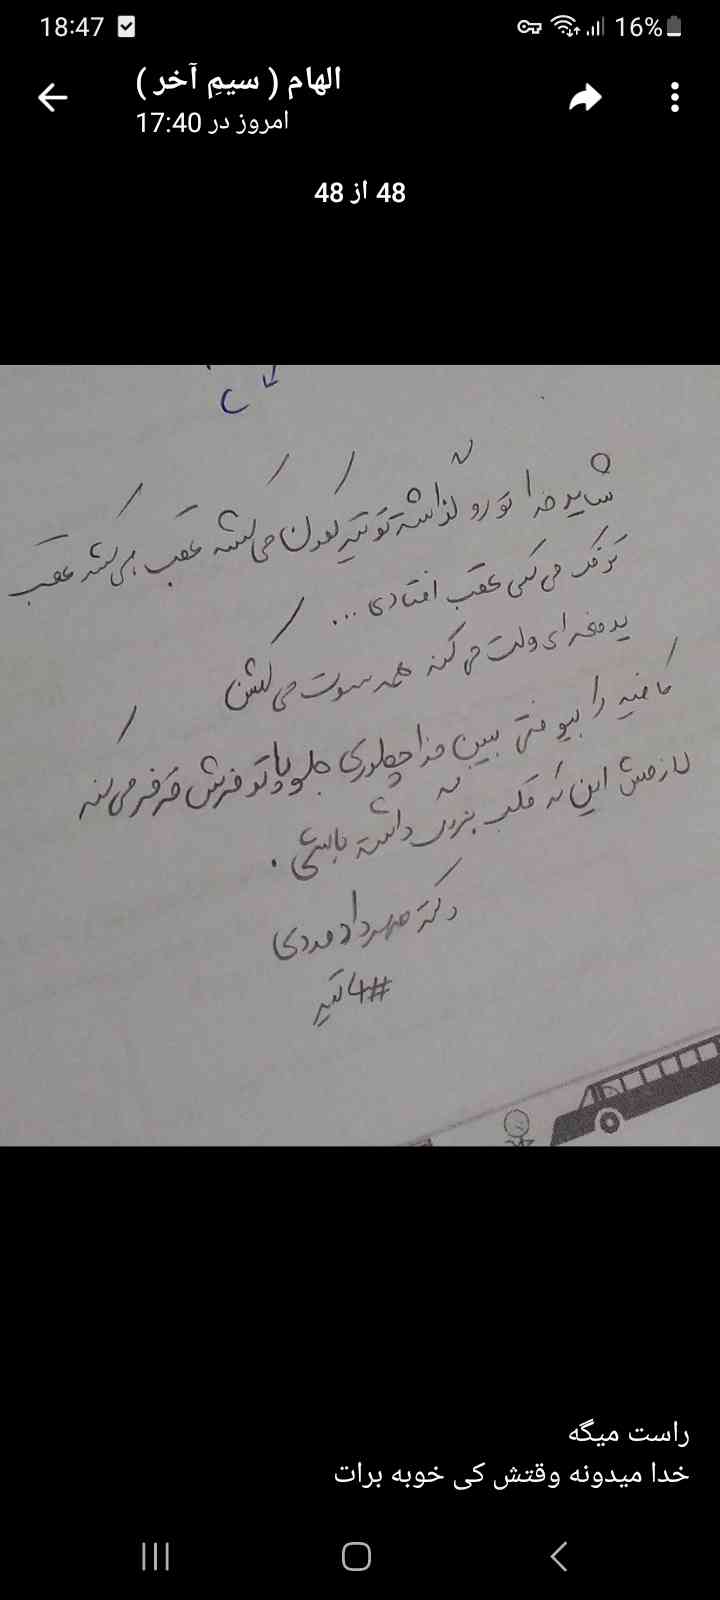 18:47
16%
الهام ( سیمِ آخر )
امروز در 17:40
48 از 48
شاید خدا تو رو گذاشته تو تیر کمون می کشه عقب می کشه عقب
تو فک می کنی عقب افتادی ...
یدفعه ای ولت می کنه همه سوت می کشن
کافیه را بیوفتی ببین خدا چطوری جلو پاتو فرش قرمز می کنه
لازمش این که قلب بزرگ داشته باشی .
دکتر مهرداد
#4 تیر
راست میگه
خدا میدونه وقتش کی خوبه برات